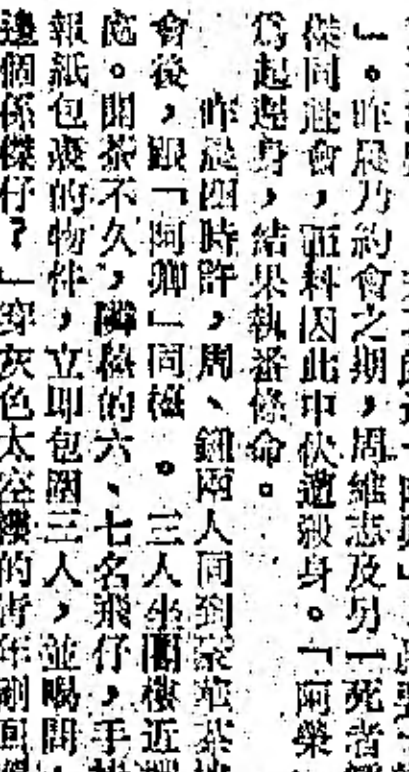 」。昨晨乃約會之期,周維志及另一死者
傑同赴會,詎料因此中伏遭殺身。「阿榮
爲起遲身,結果執番條命。
昨晨四時許,周、鈕兩人同到
會後,跟「阿卿」同檯。三人坐閣樓近
處。開茶不久,隣檯的六、七名飛仔,手
報紙包裹的物件,立即包圍三人,並喝問
邊個係傑仔?」穿灰色太空褸的靑年剛回